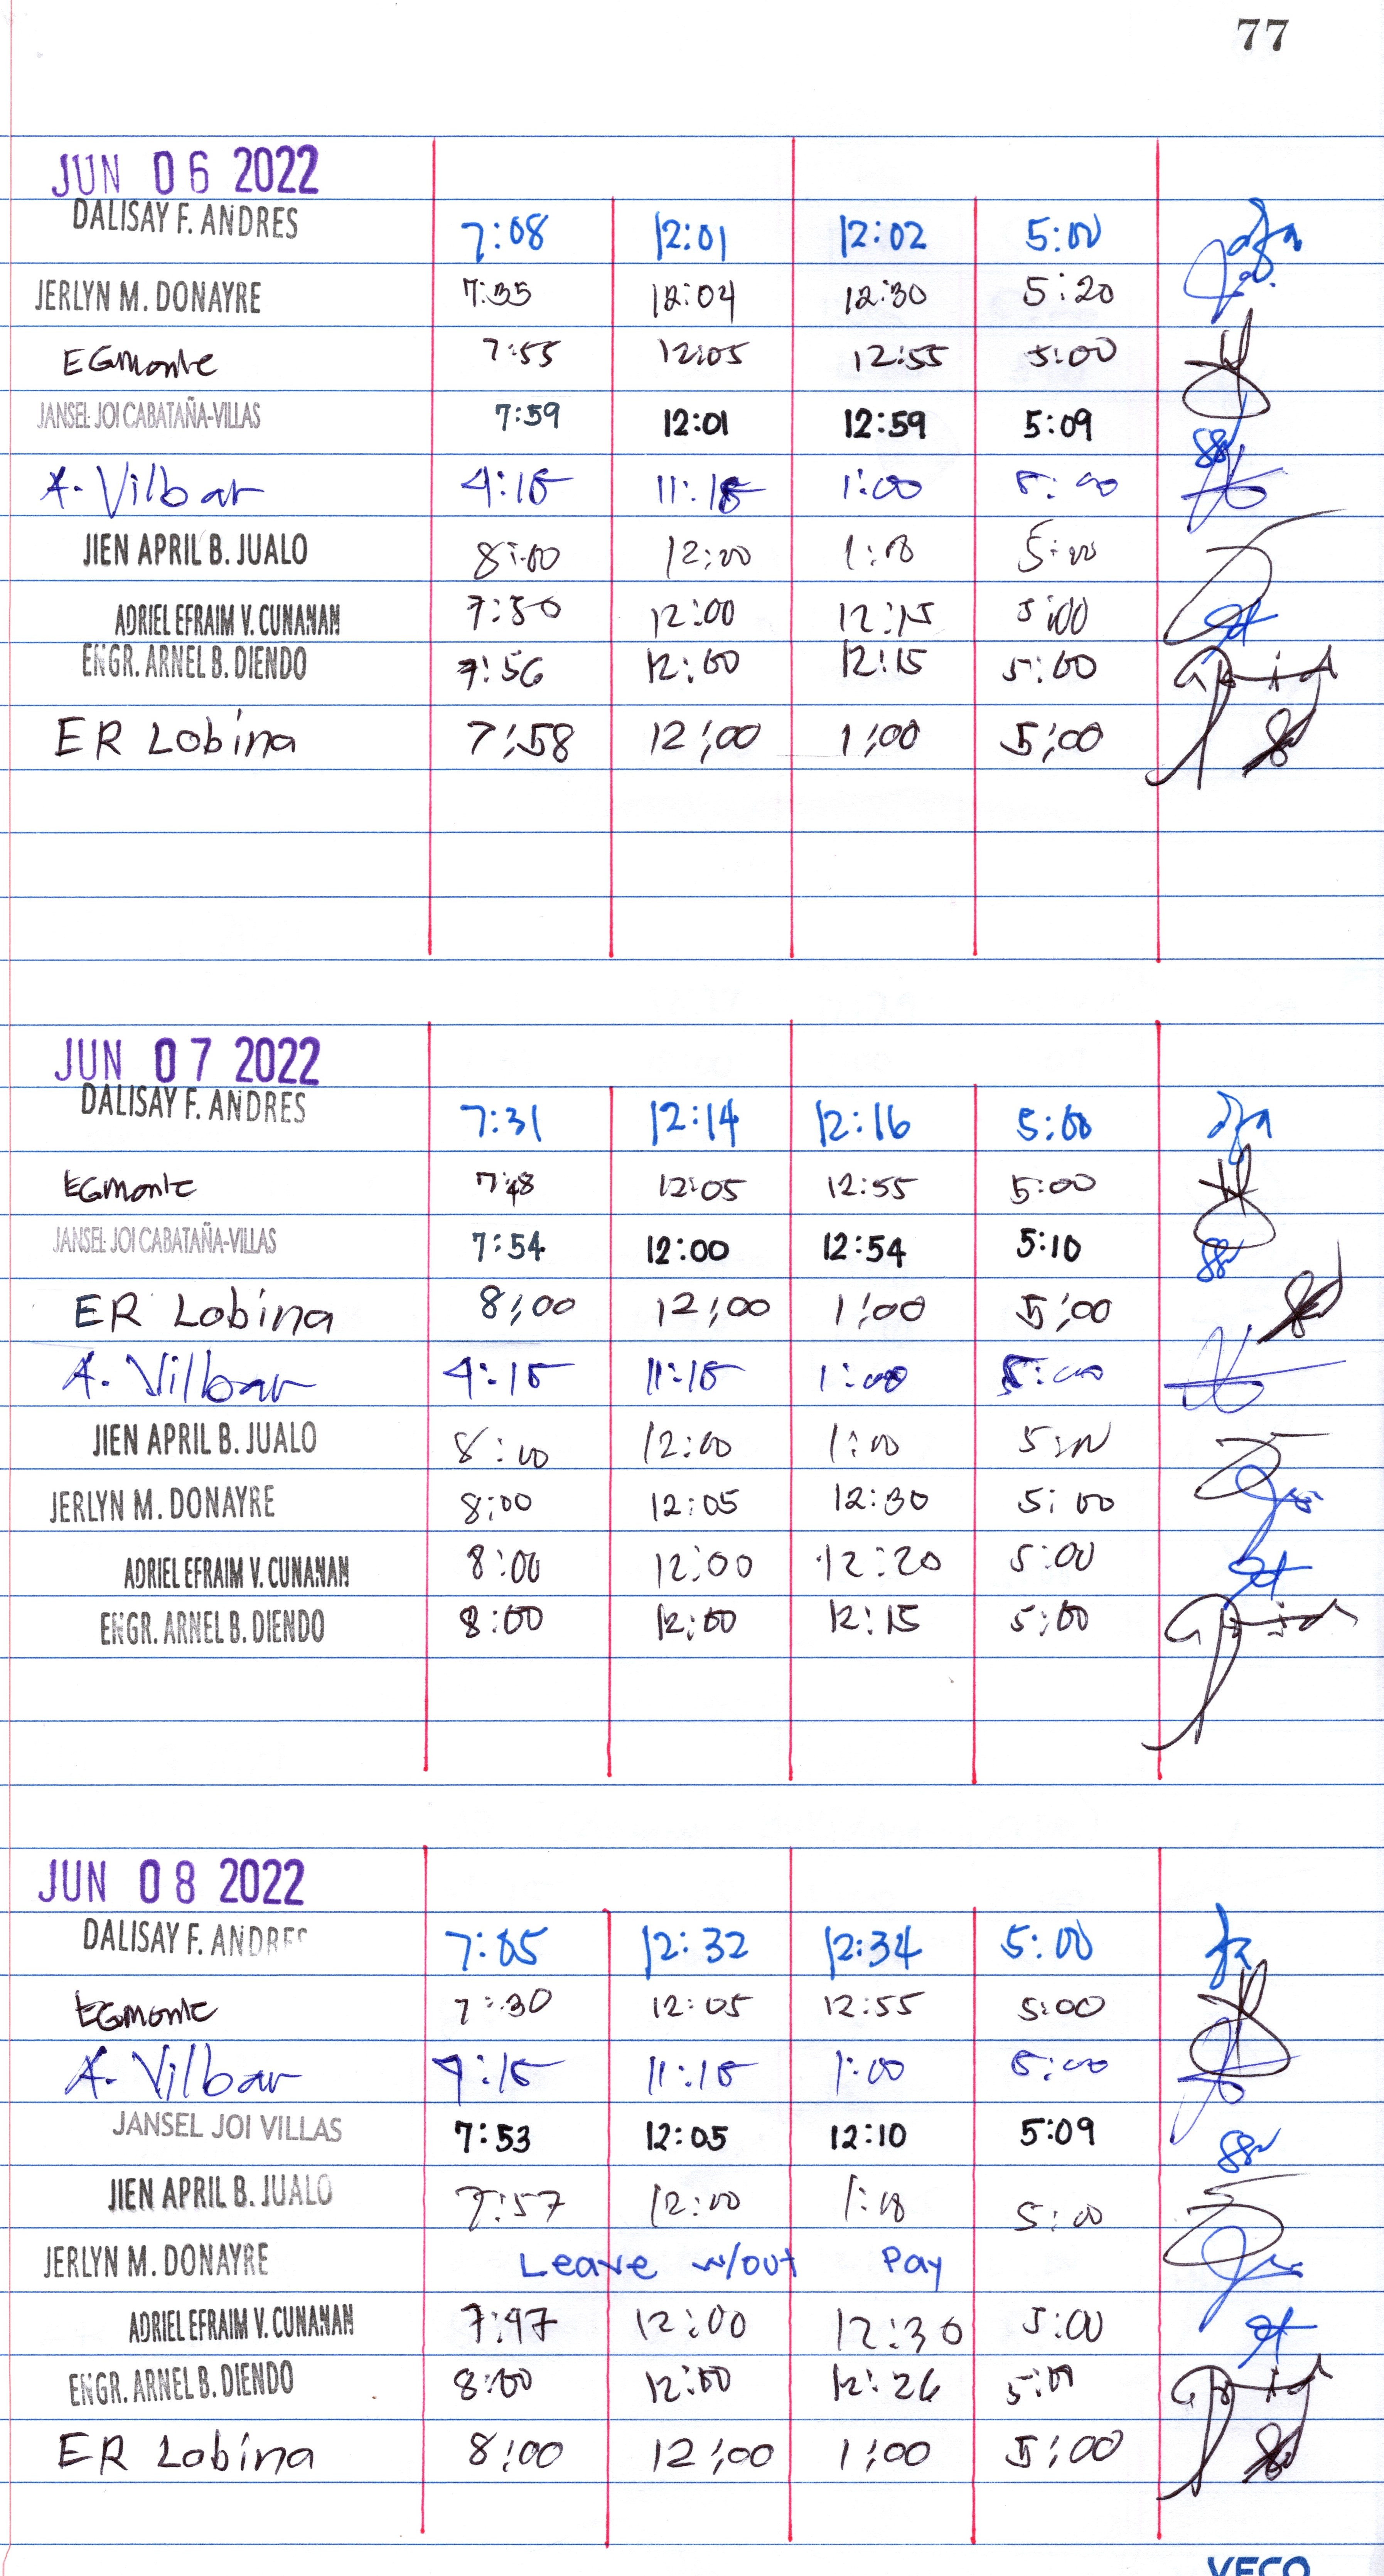 77
JUN 06 2022
DALISAY F. ANDRES 7:08 12:01 12:02 5:00
JERLYN M. DONAYRE 7:35 12:04 12:30 5:20
EGmonte 7:55 12:05 12:55 5:00
JANSEL JOI CABATAÑA-VILLAS 7:59 12:01 12:59 5:09
A. Vilbar 4:15 11:15 1:00 5:00
JIEN APRIL B. JUALO 8:00 12:00 5:00
ADRIEL EFRAIM V. CUNANAN 7:50 12:00 12:15 5:00
ENGR. ARNEL B. DIENDO 7:56 12:00 12:15 5:00
ER Lobina 7:58 12:00 1:00 5:00
JUN 07 2022
DALISAY F. ANDRES 7:31 12:14 12:16 5:00
EGmonte 7:48 12:05 12:55 5:00
JANSEL JOI CABATAÑA-VILLAS 7:54 12:00 12:54 5:10
ER Lobina 8:00 12:00 1:00 5:00
A. Vilbar 4:15 11:15 1:00 5:00
JIEN APRIL B. JUALO 8:00 12:00 1:00 5:00
JERLYN M. DONAYRE 8:00 12:05 12:30 5:00
ADRIEL EFRAIM V. CUNANAN 8:00 12:00 12:20 5:00
ENGR. ARNEL B. DIENDO 8:00 12:00 12:15 5:00
JUN 08 2022
DALISAY F. ANDRES 7:05 12:32 12:34 5:00
EGmonte 7:30 12:05 12:55 5:00
A. Vilbar 11:15 1:00 5:00
JANSEL JOI VILLAS 7:53 12:05 12:10 5:09
JIEN APRIL B. JUALO 7:57 12:00 5:00
JERLYN M. DONAYRE Leave w/out Pay
ADRIEL EFRAIM V. CUNANAN 7:47 12:00 12:30 5:00
ENGR. ARNEL B. DIENDO 8:00 12:00 12:26 5:00
ER Lobina 8:00 12:00 1:00 5:00
VECO